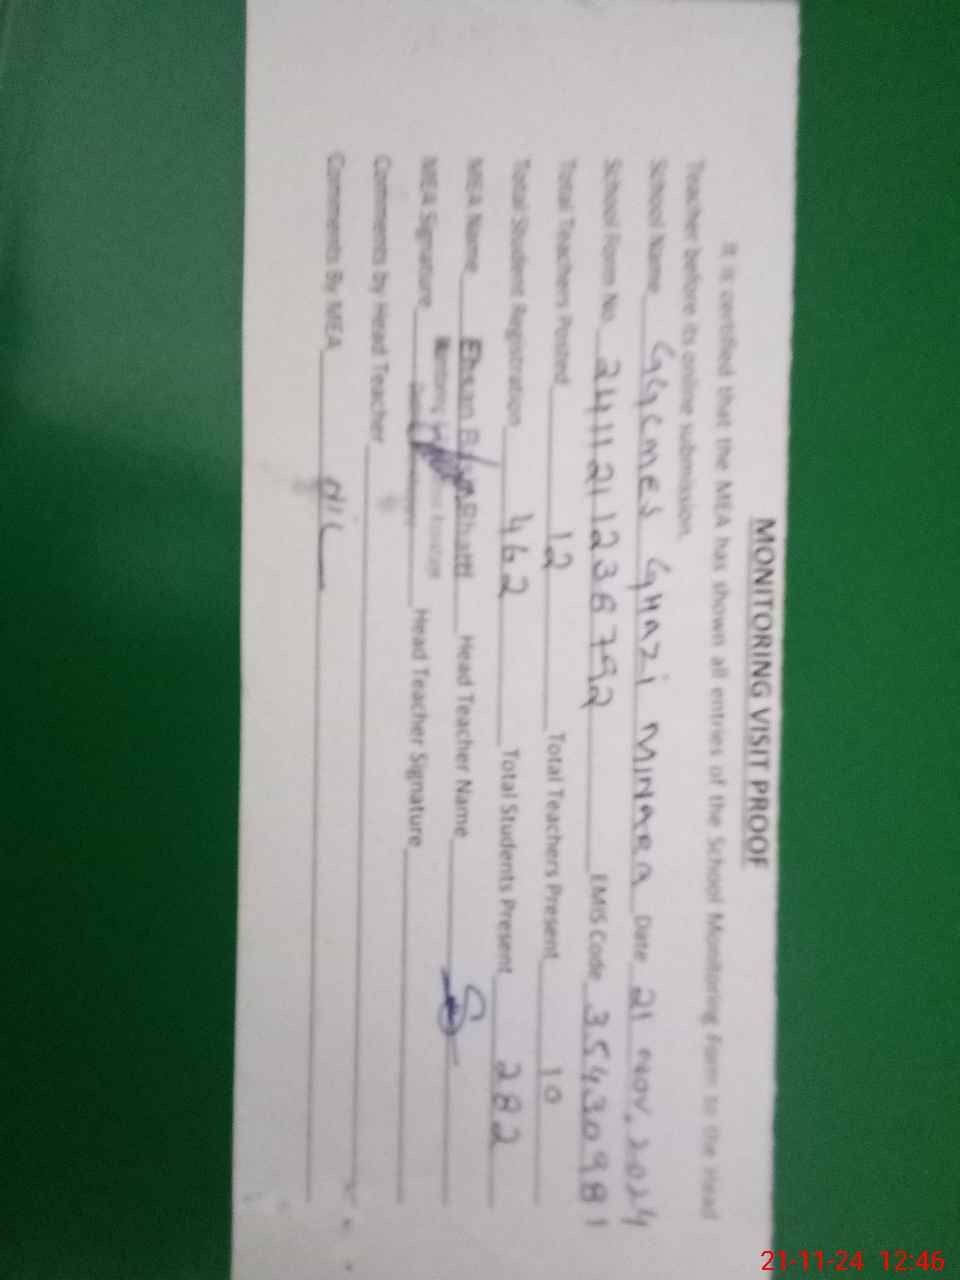 MONITORING VISIT PROOF
It is certified that the MEA has shown all entries of the School Monitoring Form to the Head
Teacher before its online submission.
School Name GGCMES GHAZI MINARA Date 21 NOV. 2024
School Form No. 241121 1236792 EMIS Code 35430981
Total Teachers Posted 12 Total Teachers Present 10
Total Student Registration 462 Total Students Present 282
MEA Name Ehsan Bhatti Head Teacher Name
MEA Signature Head Teacher Signature
Comments by Head Teacher
Comments By MEA NIL
21-11-24 12:46